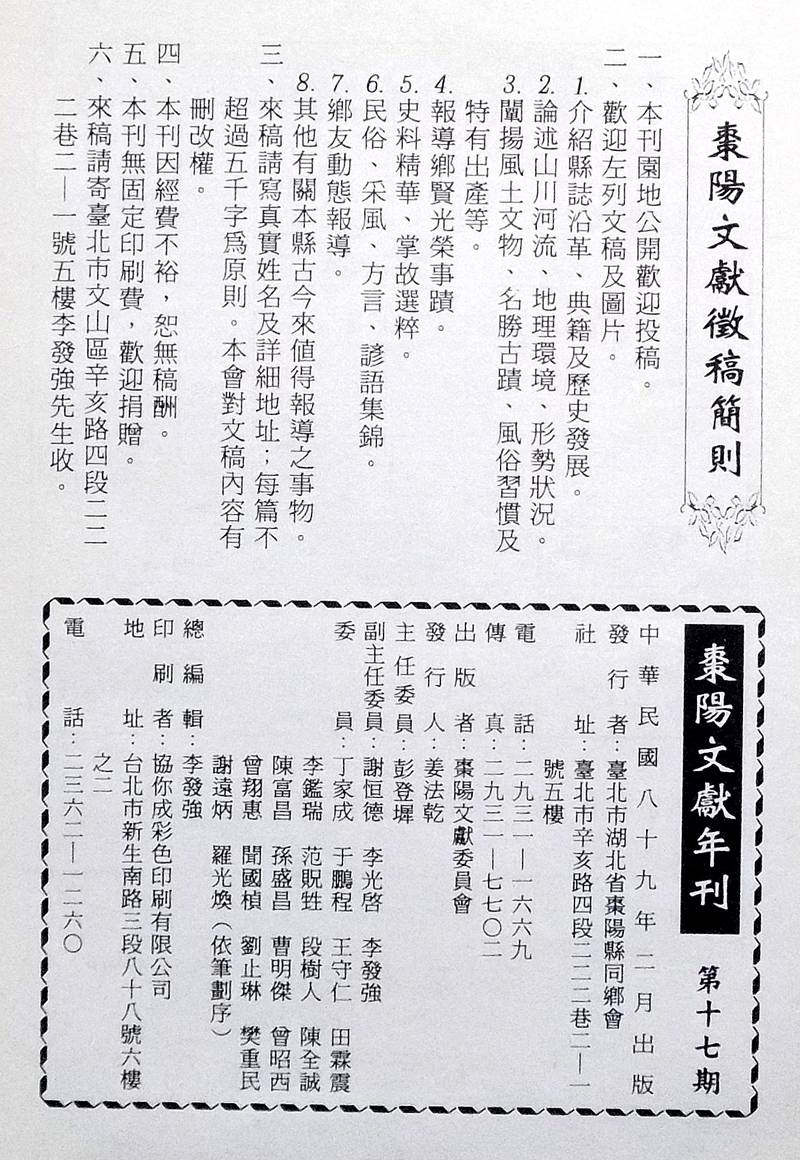 棗陽文獻徵稿簡則
一、本刊園地公開歡迎投稿。
二、歡迎左列文稿及圖片。
1.介紹縣誌沿革、典籍及歷史發展。
2.論述山川河流、地理環境、形勢狀況。
3.闡揚風土文物、名勝古蹟、風俗習慣及
特有出產等。
4.報導鄉賢光榮事蹟。
5.史料精華、掌故選粹。
6.民俗、采風、方言、諺語集錦。
7.鄉友動態報導。
8.其他有關本縣古今來值得報導之事物。
三、來稿請寫真實姓名及詳細地址；每篇不
超過五千字爲原則。本會對文稿內容有
刪改權。
四、本刊因經費不裕，恕無稿酬。
五、本刊無固定印刷費，歡迎捐贈。
六、來稿請寄臺北市文山區辛亥路四段二二
二巷二—一號五樓李發強先生收。
棗陽文獻年刊 第十七期
中華民國八十九年二月出版
發行者：臺北市湖北省棗陽縣同鄉會
社址：臺北市辛亥路四段二二二巷二—一
號五樓
電話：二九三一—一六六九
傳真：二九三一—七七〇二
出版者：棗陽文獻委員會
發行人：姜法乾
主任委員：彭登墀
副主任委員：謝恒德 李光啓 李發強
委員：丁家成 于鵬程 王守仁 田霖震
李鑑瑞 范貺甡 段樹人 陳全誠
陳富昌 孫盛昌 曹明傑 曾昭西
曾翔惠 聞國楨 劉止琳 樊重民
謝遠炳 羅光煥（依筆劃序）
總編輯：李發強
印刷者：協你成彩色印刷有限公司
地址：台北市新生南路三段八十八號六樓
之二
電話：二三六二—一二六〇